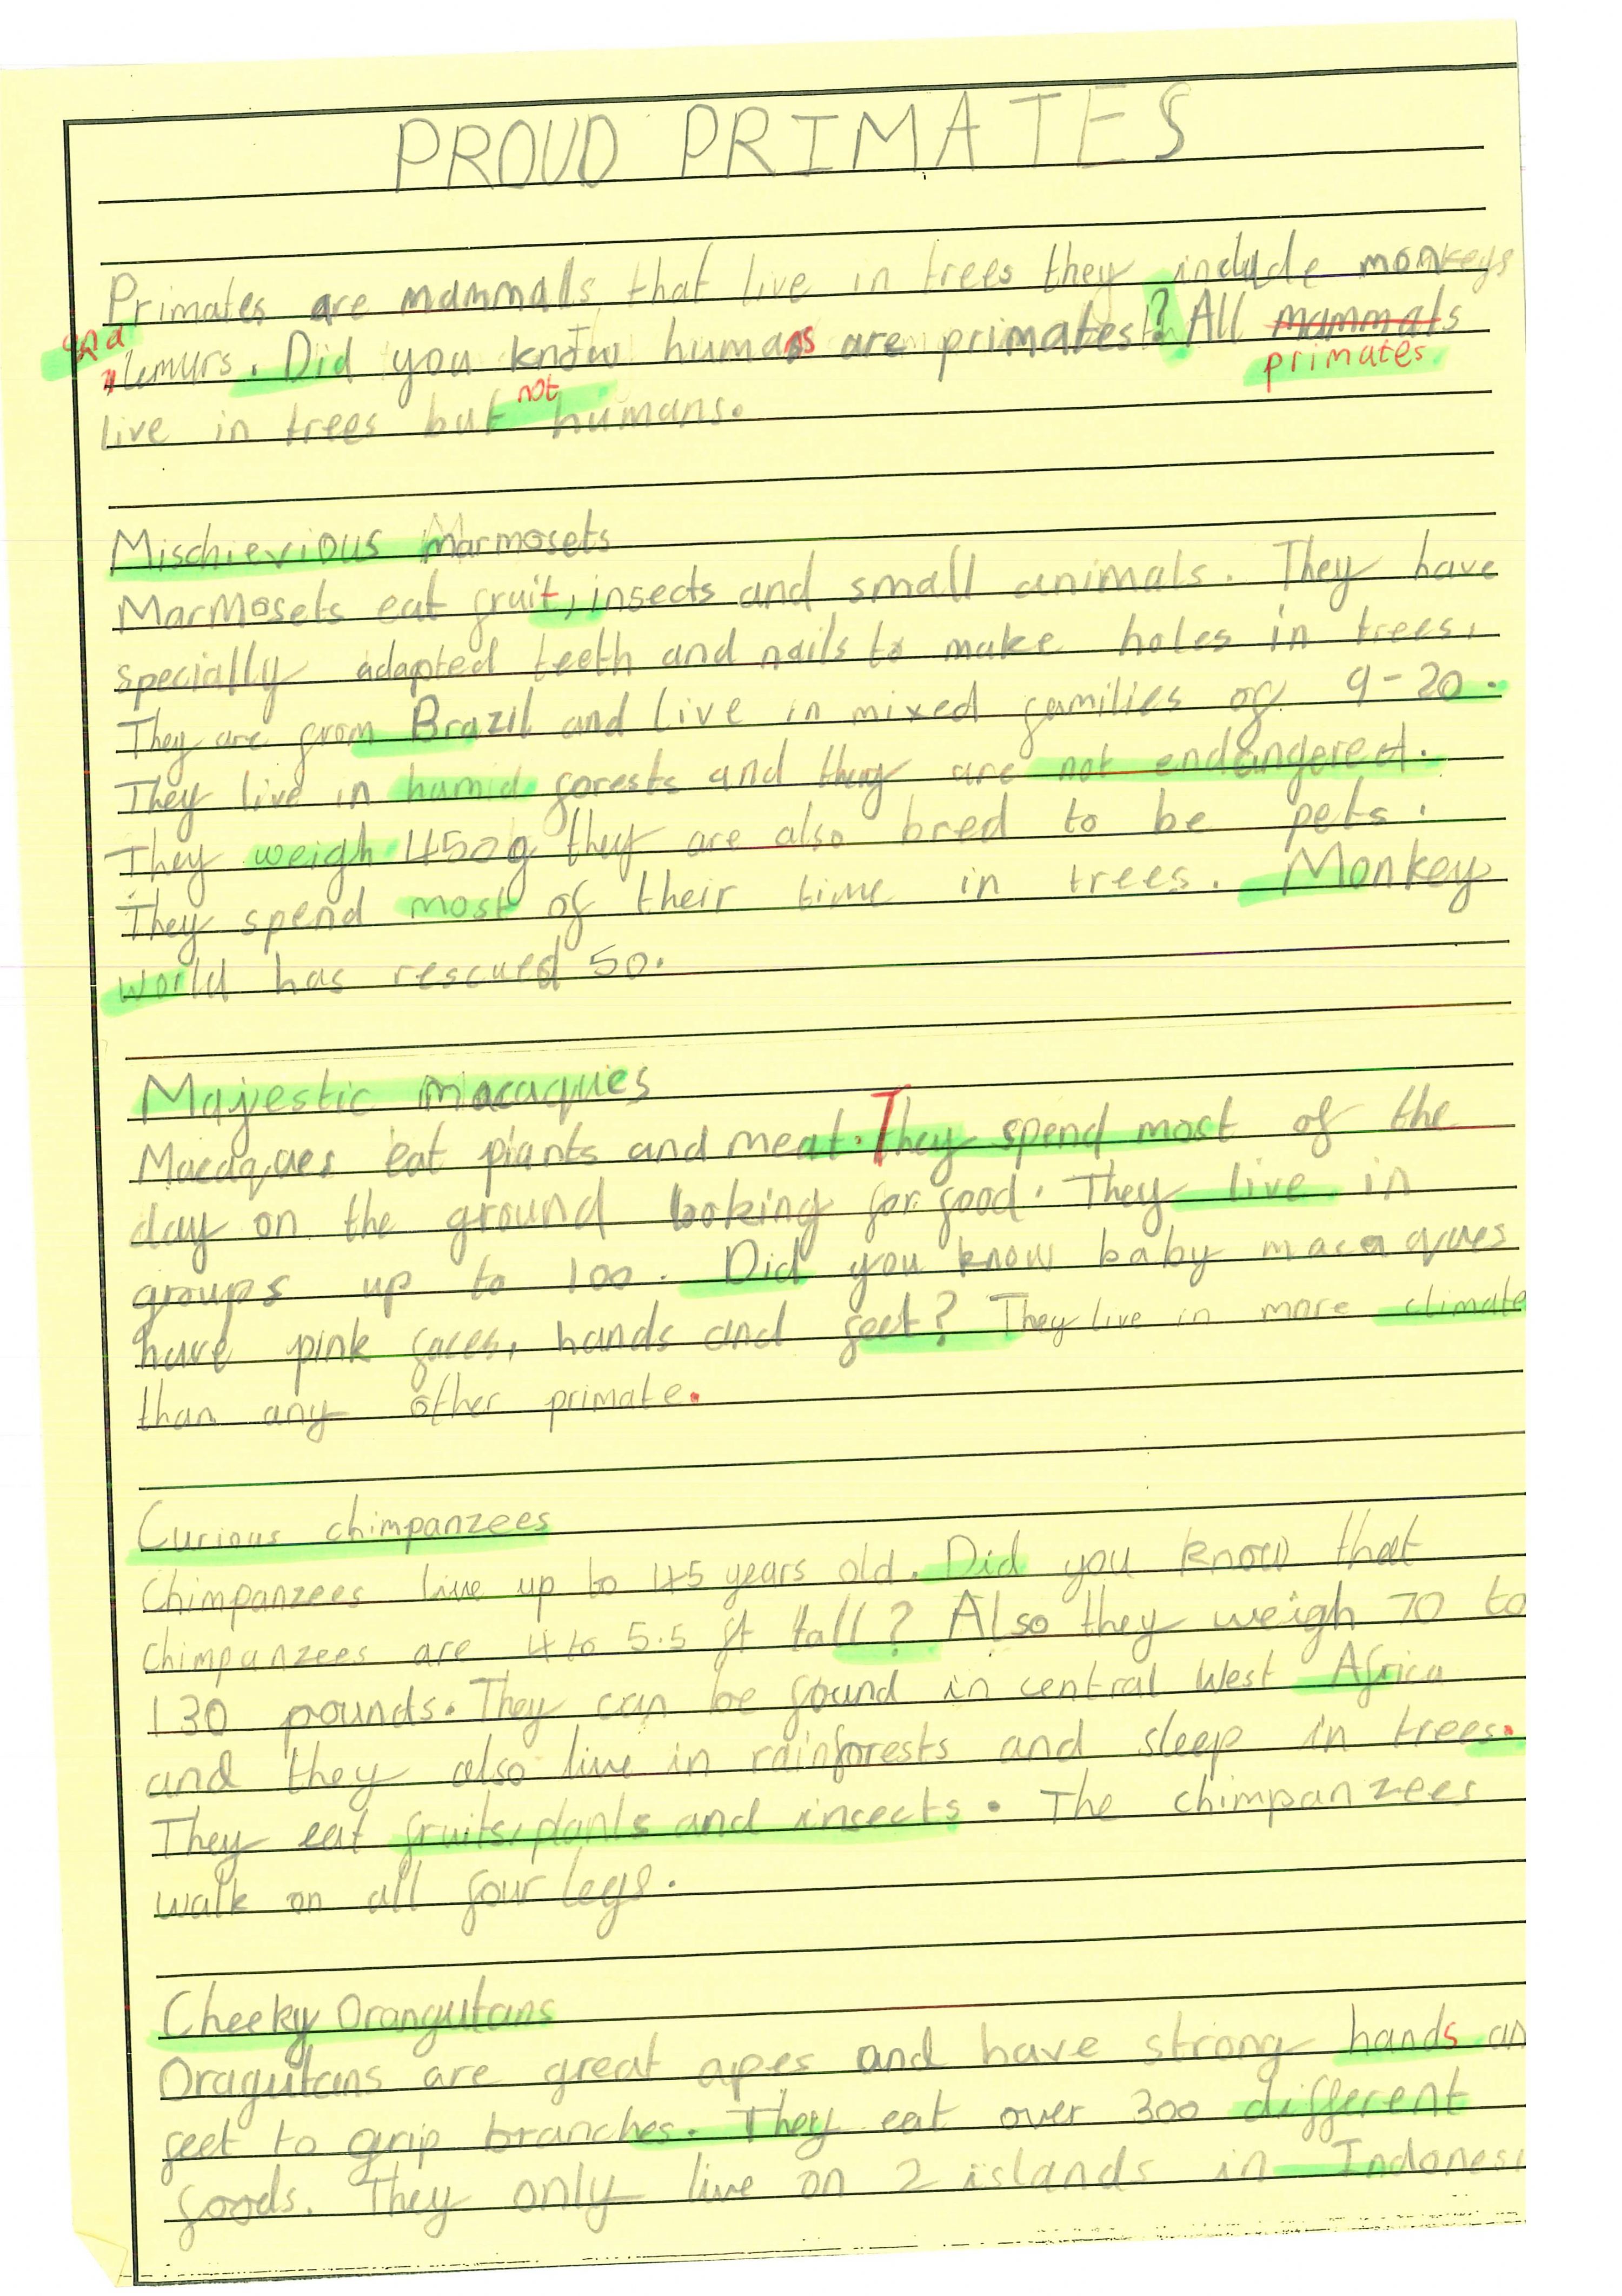 PROUD PRIMATES
Primates are mammals that live in trees they include monkeys
and lemurs. Did you know humans are primates? All mammals
primates
not
live in trees but humans.
Mischievious Marmosets
Marmosets eat fruit, insects and small animals. They have
specially adapted teeth and nails to make holes in trees.
They are from Brazil and live in mixed families of 9-20.
They live in humid forests and they are not endangered.
They weigh 450g they are also bred to be pets.
They spend most of their time in trees. Monkey
world has rescued 50.
Majestic macaques
Macaques eat plants and meat. They spend most of the
day on the ground looking for food. They live in
groups up to 100. Did you know baby macaques
have pink faces, hands and feet? They live in more climate
than any other primate.
Curious chimpanzees
Chimpanzees live up to 45 years old. Did you know that
chimpanzees are 4 to 5.5 ft tall? Also they weigh 70 to
130 pounds. They can be found in central West Africa
and they also live in rainforests and sleep in trees.
They eat fruits, plants and insects. The chimpanzees
walk on all four legs.
Cheeky Orangutans
Oragutans are great apes and have strong hands an
feet to grip branches. They eat over 300 different
foods. They only live on 2 islands in Indones